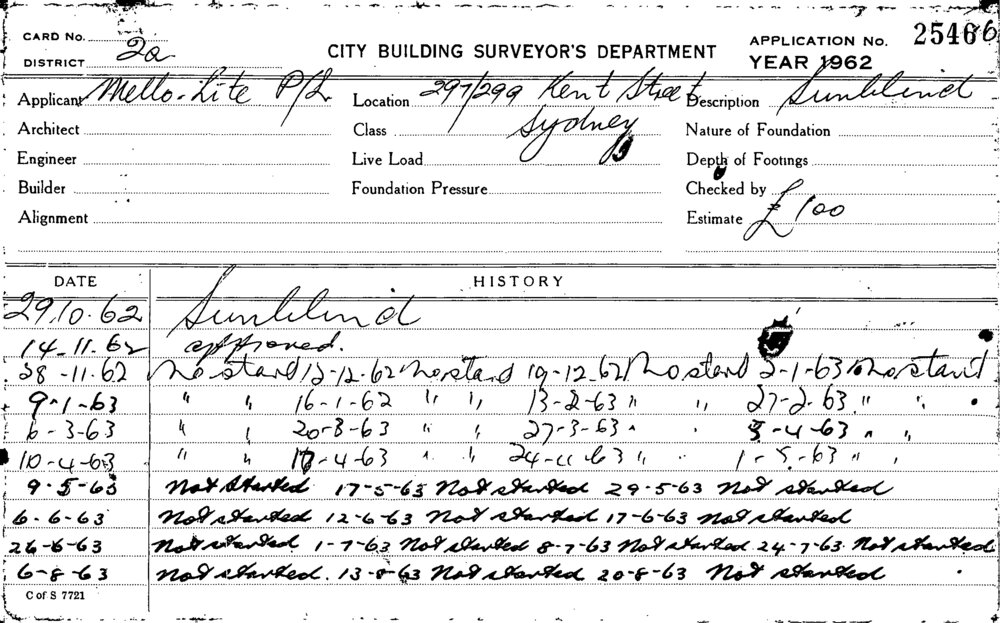 CARD No.
DISTRICT 2a
CITY BUILDING SURVEYOR'S DEPARTMENT
APPLICATION No. 25466
YEAR 1962
Applicant Mello-Lite P/L Location 297/299 Kent Street Description Sunblind
Sydney
Architect Class Nature of Foundation
Engineer Live Load Depth of Footings
Builder Foundation Pressure Checked by
Alignment Estimate £100
DATE HISTORY
29.10.62 Sunblind
14.11.62 approved.
28-11.62 No start 12-12.62 No start 19-12.62 No start 2-1-63 No start
9-1-63 " " 16-1-62 " " 13-2-63 " " 27-2.63 " "
6-3-63 " " 20-3-63 " " 27-3-63 " 3-4-63 " "
10-4-63 " " 17-4-63 " " 24-4-63 " " 1-5-63 " "
9-5-63 Not started 17-5-63 Not started 29-5-63 Not started
6-6-63 Not started 12-6-63 Not started 17-6-63 Not started
26-6-63 Not started 1-7-63 Not started 8-7-63 Not started 24-7-63 Not started
6-8-63 Not started. 13-8-63 Not started 20-8-63 Not started
C of S 7721